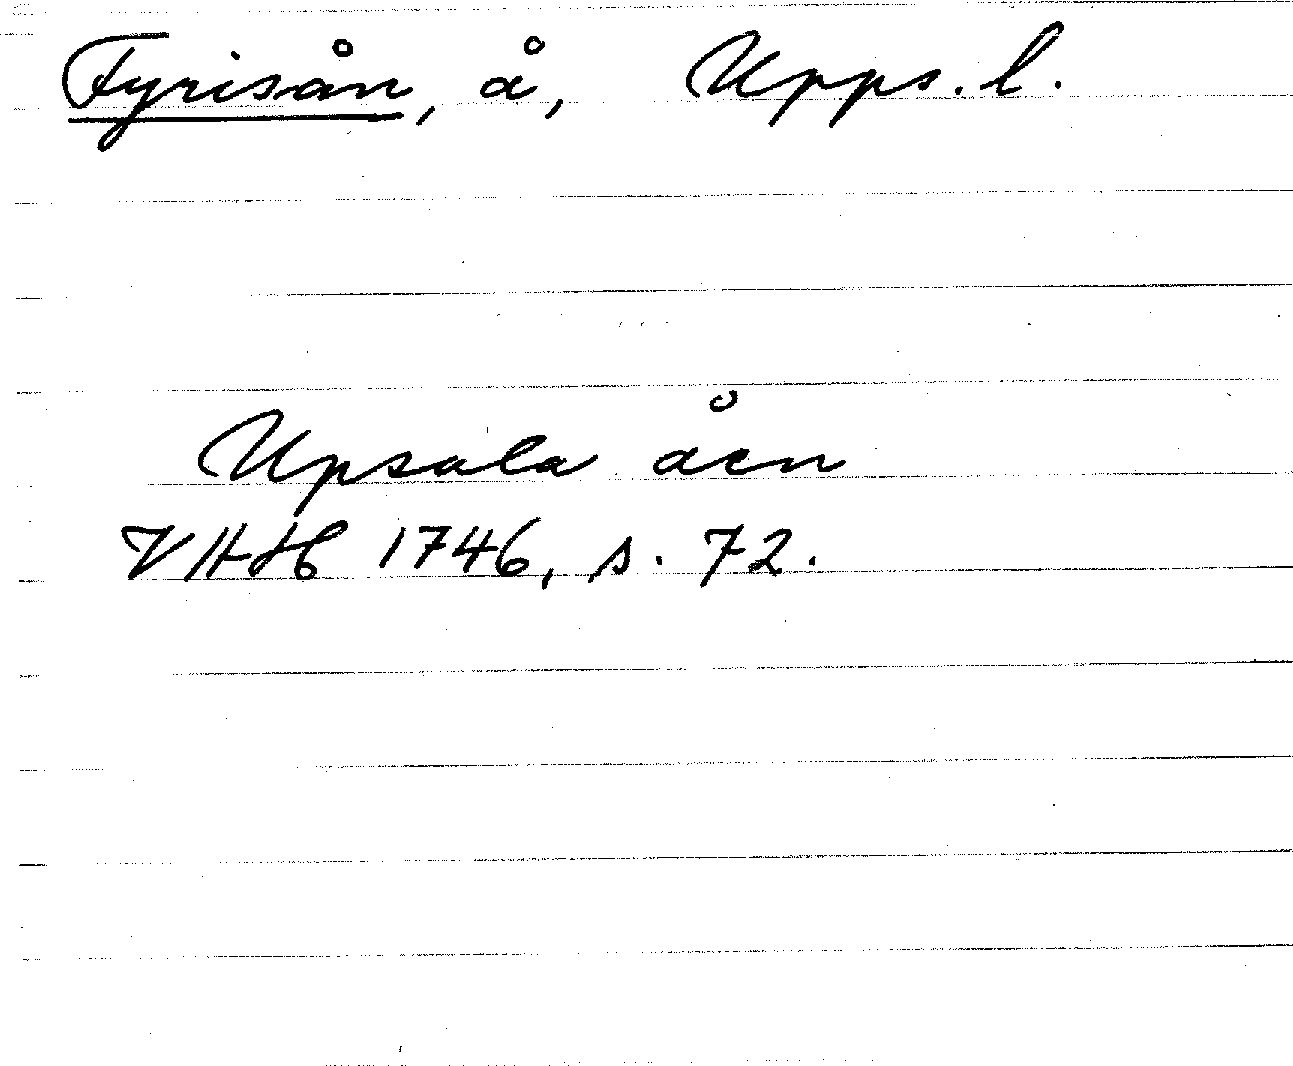 Fyrisån, å, Upps. l.
Upsala åen
VHAH 1746, s. 72.